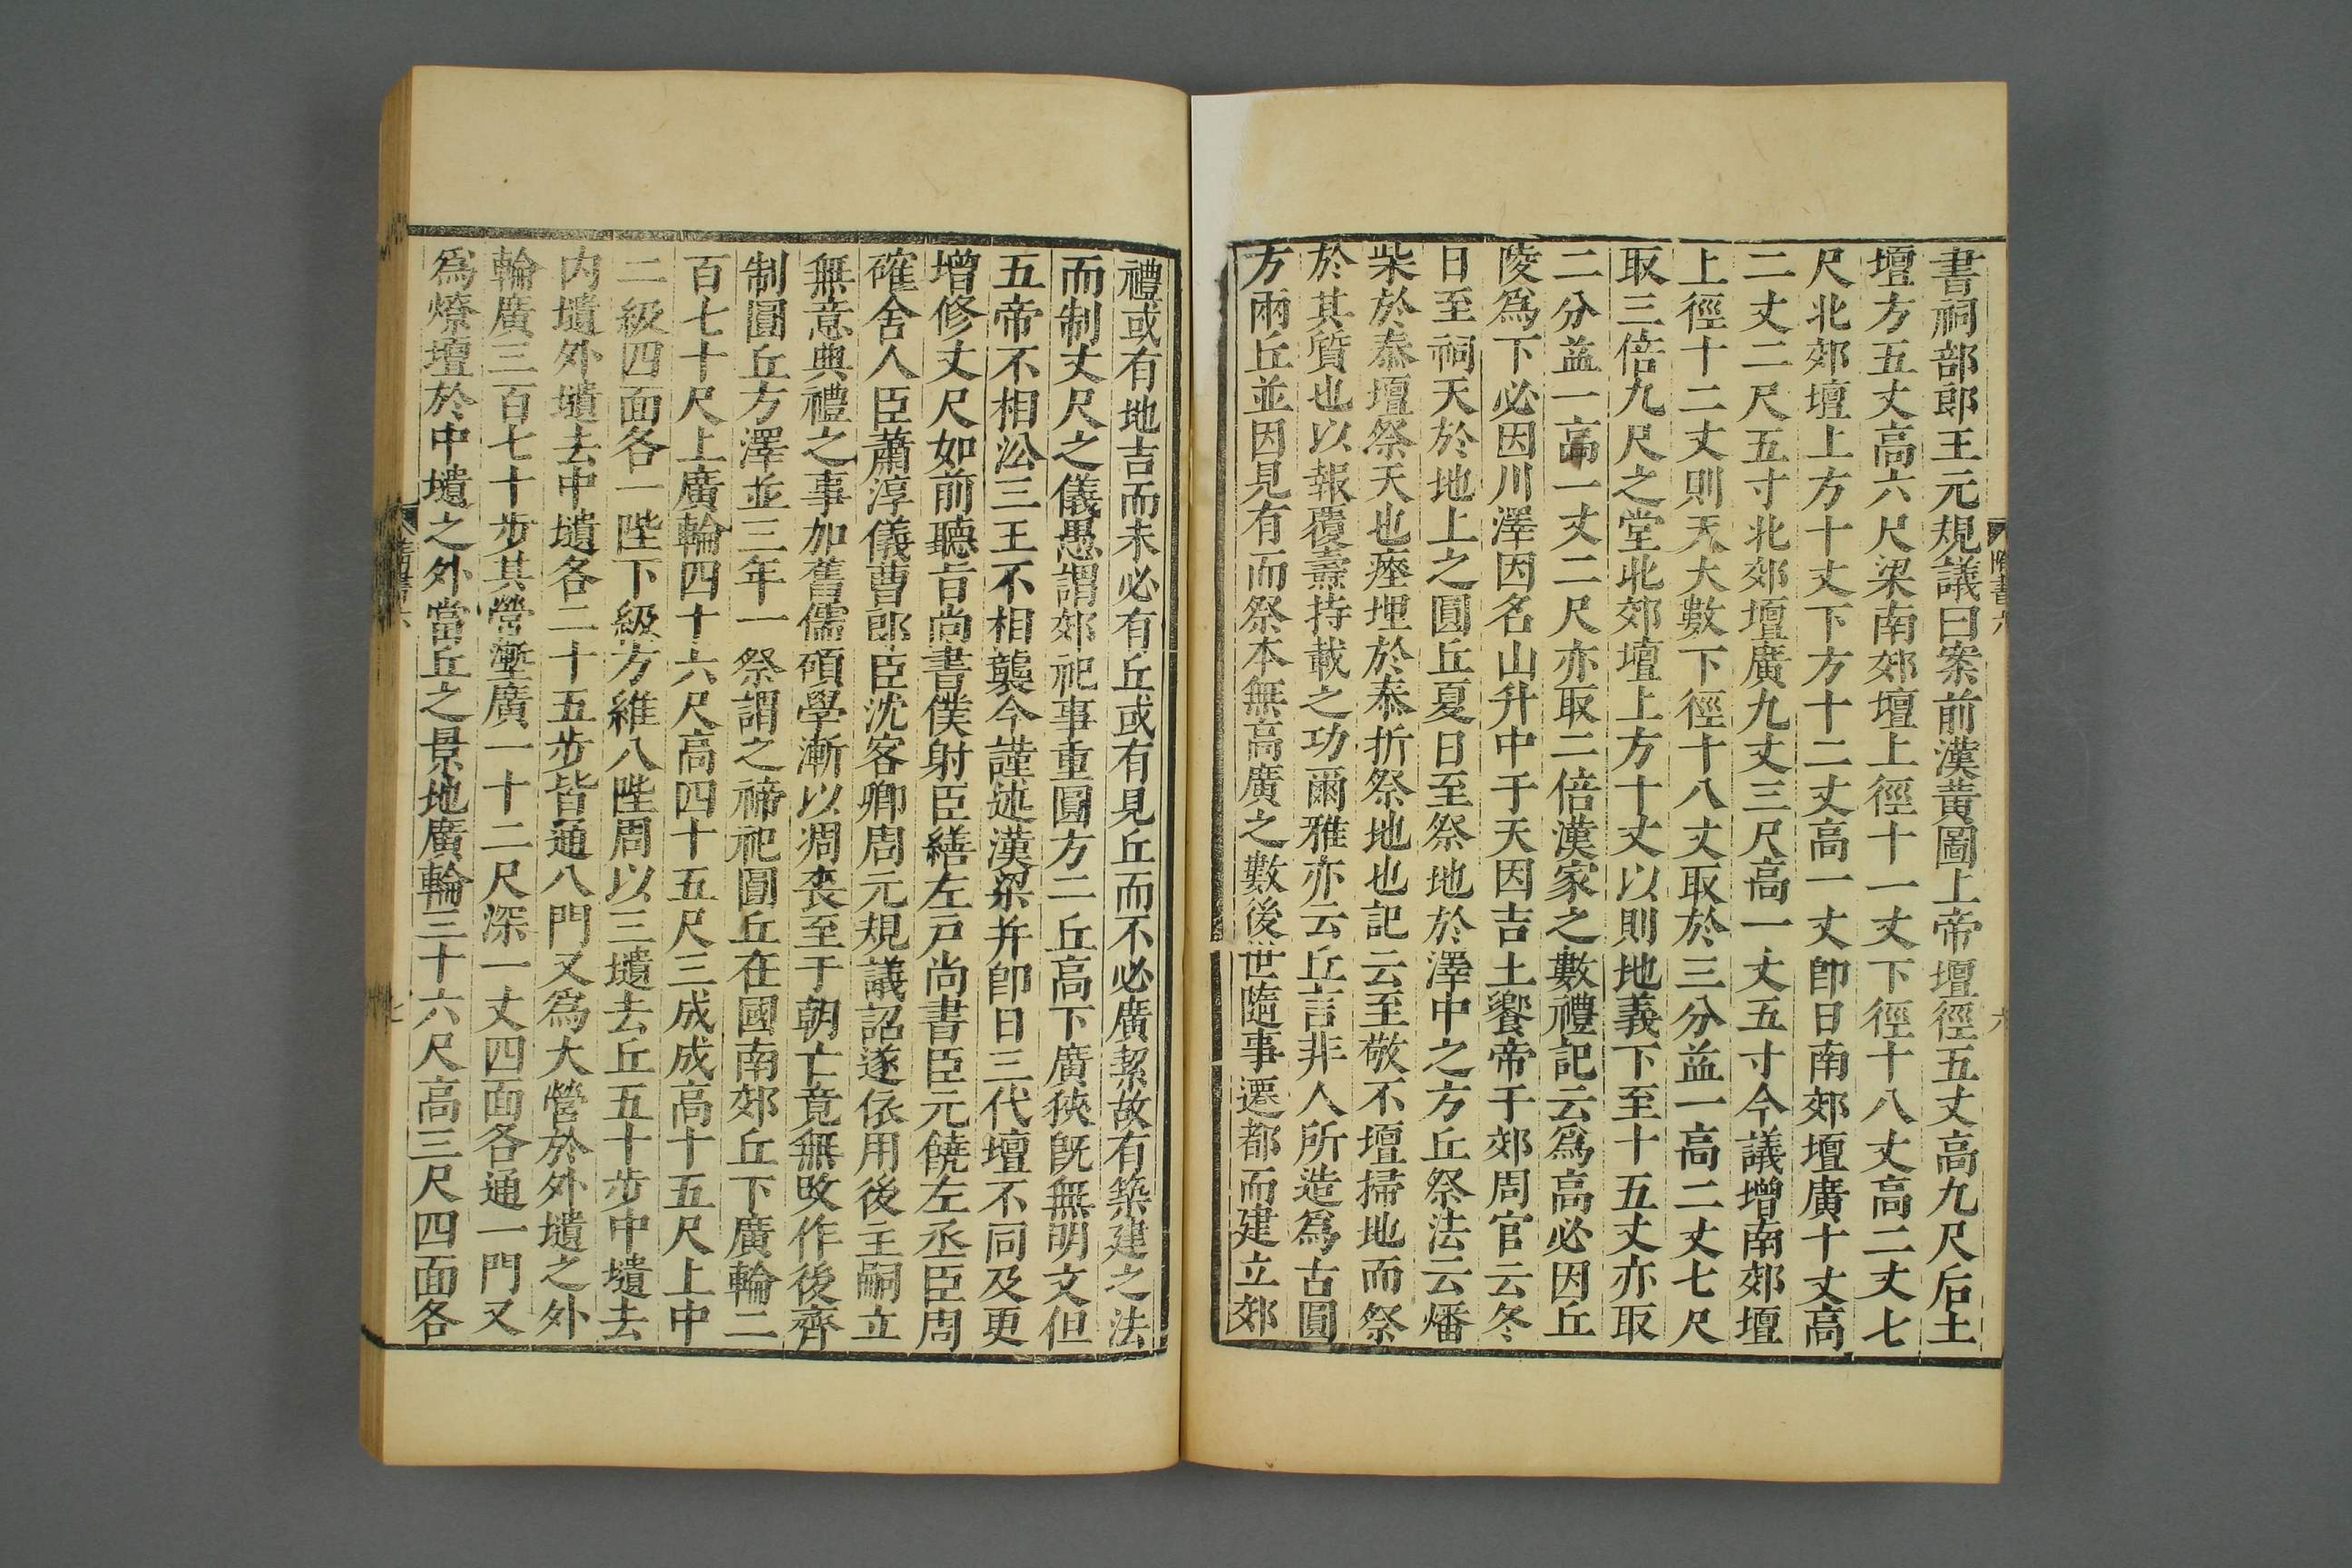 書祠部郎王元規議曰案前漢黃圖上帝壇徑五丈高九尺后土
壇方五丈高六尺梁南郊壇上徑十一丈下徑十八丈高二丈七
尺北郊壇上方十丈下方十二丈高一丈卽日南郊壇廣十丈高
二丈二尺五寸北郊壇廣九丈三尺高一丈五寸今議增南郊壇
上徑十二丈則天大數下徑十八丈取於三分益一高二丈七尺
取三倍九尺之堂北郊壇上方十丈以則地義下至十五丈亦取
二分益一高一丈二尺亦取二倍漢家之數禮記云爲高必因丘
陵爲下必因川澤因名山升中于天因吉土饗帝于郊周官云冬
日至祠天於地上之圓丘夏日至祭地於澤中之方丘祭法云燔
柴於泰壇祭天也瘞埋於泰折祭地也記云至敬不壇掃地而祭
於其質也以報覆燾持載之功爾雅亦云丘言非人所造爲古圓
方兩丘並因見有而祭本無高廣之數後世隨事遷都而建立郊
隋書六
六
禮或有地吉而未必有丘或有見丘而不必廣絜故有築建之法
而制丈尺之儀愚謂郊祀事重圓方二丘高下廣狹旣無明文但
五帝不相沿三王不相襲今謹述漢梁并卽日三代壇不同及更
增修丈尺如前聽旨尚書僕射臣繕左戸尚書臣元饒左丞臣周
確舍人臣蕭淳儀曹郎臣沈客卿周元規議詔遂依用後主嗣立
無意典禮之事加舊儒碩學漸以凋喪至于朝亡竟無改作後齊
制圓丘方澤並三年一祭謂之禘祀圓丘在國南郊丘下廣輪二
百七十尺上廣輪四十六尺高四十五尺三成成高十五尺上中
二級四面各一陛下級方維八陛周以三壝去丘五十步中壝去
内壝外壝去中壝各二十五步皆通八門又爲大營於外壝之外
輪廣三百七十步其營壍廣一十二尺深一丈四面各通一門又
爲燎壇於中壝之外當丘之景地廣輪三十六尺高三尺四面各
隋書六
七